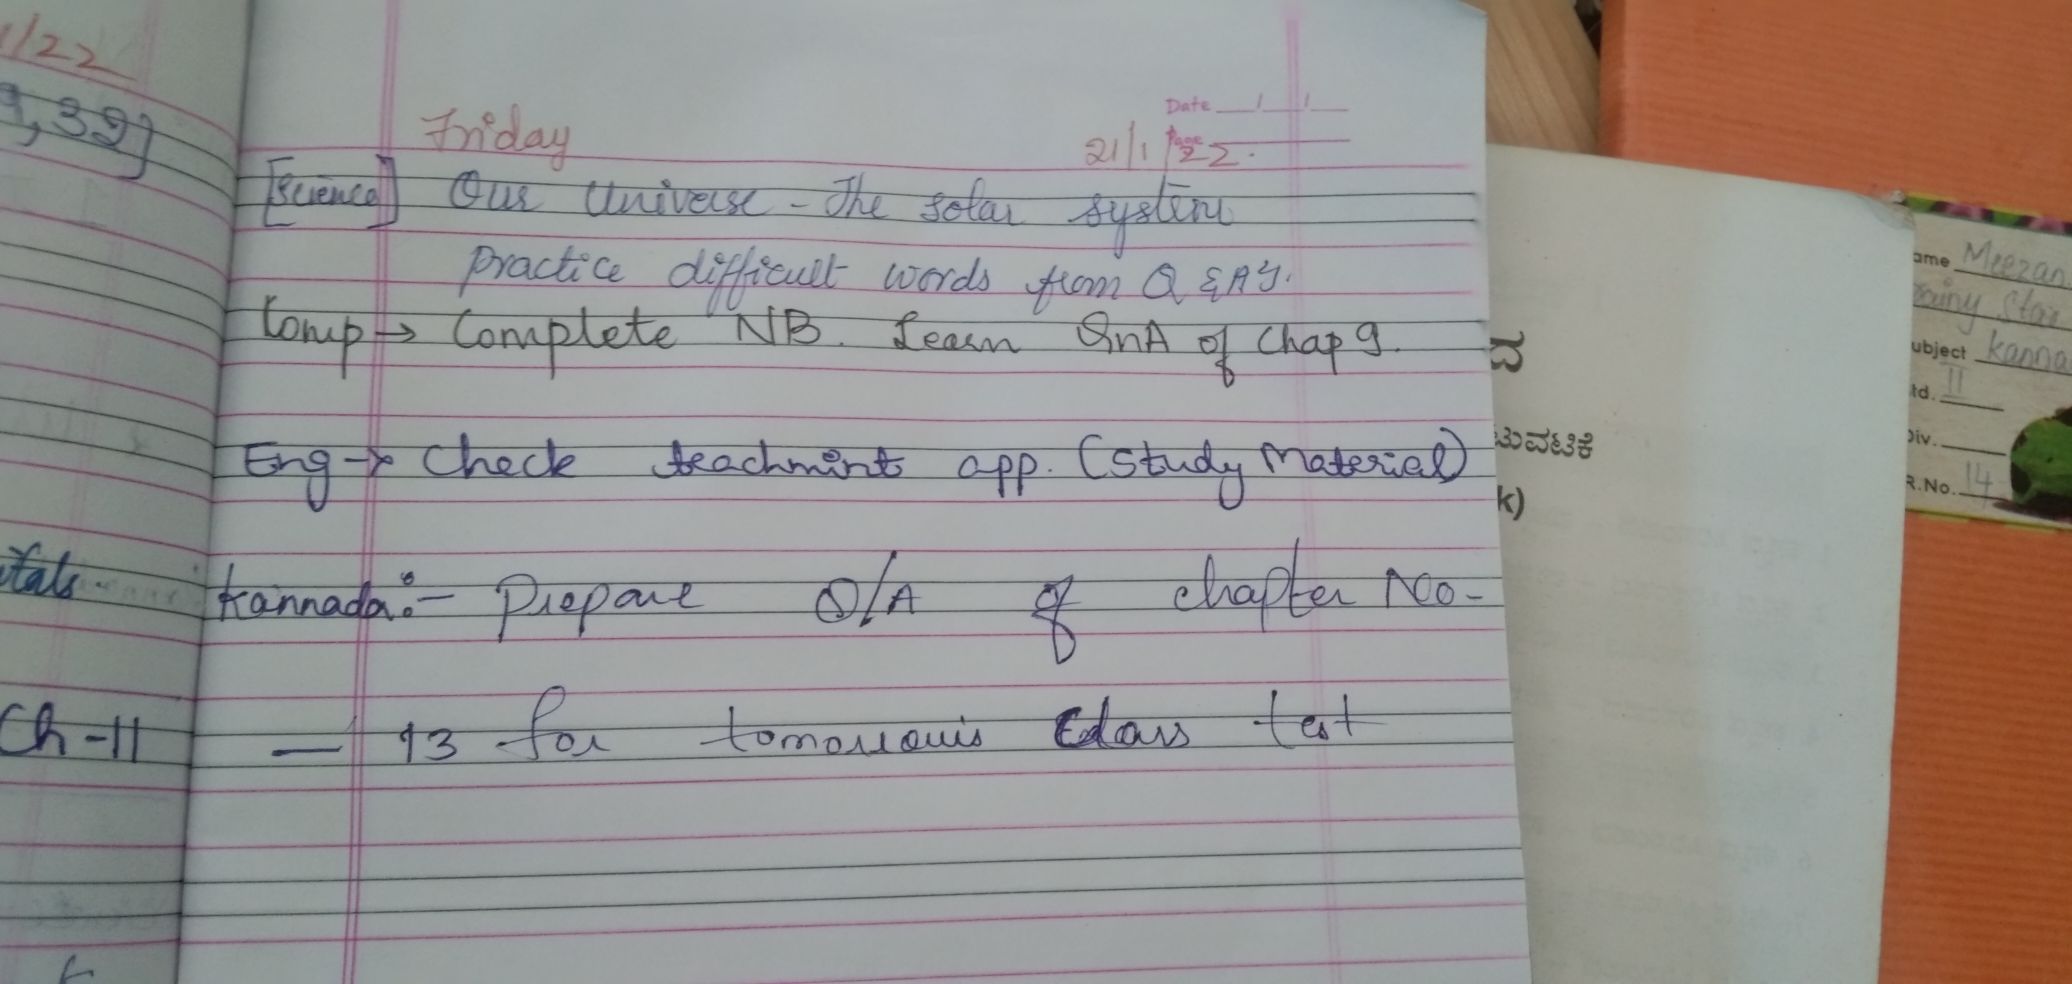 1/22
9,39]
itals
Ch-11
Friday
Date
21/1/22.
Page
[Science] Our Universe - The solar system
practice difficult words from Q & A's.
Comp → Complete NB. Learn QnA of Chap 9.
Eng → Check teachmint app. (Study Material)
Kannada:- Prepare Q/A of chapter No-
— 13 for tomorrow's class test
ದ
ಟುವಟಿಕೆ
k)
ame Meezan
rainy Star
ubject Kanna
td. II
Div.
R.No. 14